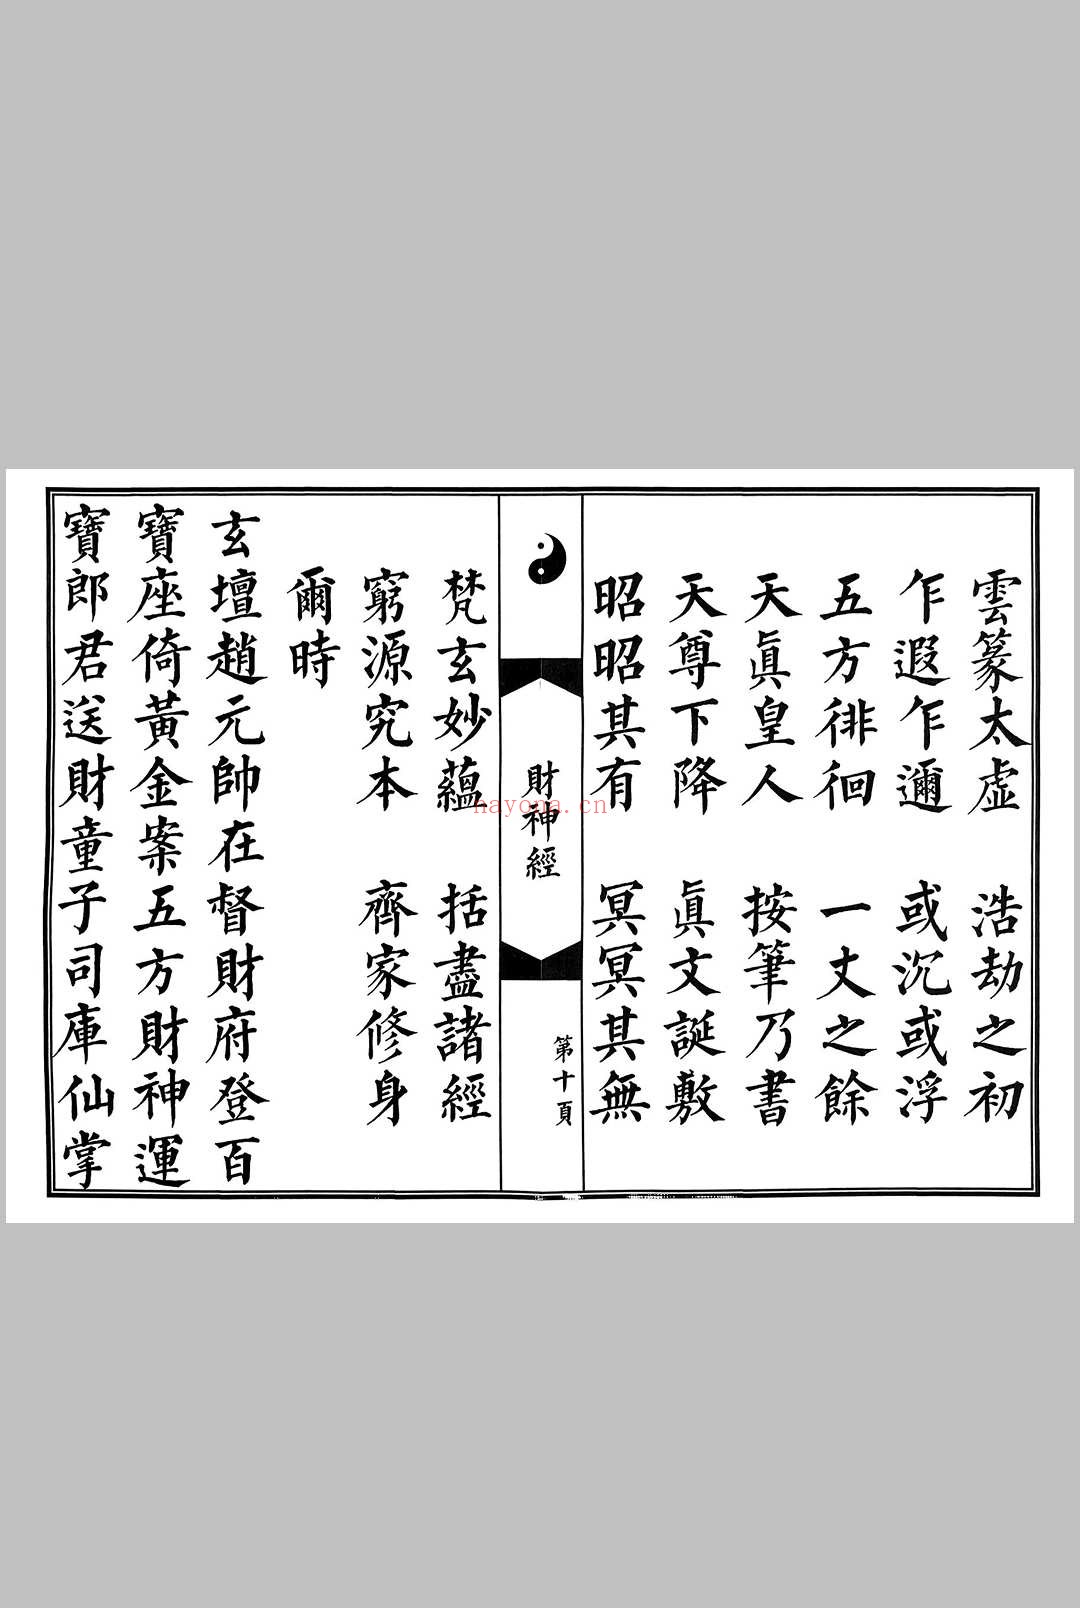 雲篆太虛　浩劫之初
乍遐乍邇　或沉或浮
五方徘徊　一丈之餘
天眞皇人　按筆乃書
天尊下降　眞文誕敷
昭昭其有　冥冥其無
財神經
第十頁
梵玄妙蘊　括盡諸經
窮源究本　齊家修身
爾時
玄壇趙元帥在督財府登百
寶座倚黃金案五方財神運
寶郎君送財童子司庫仙掌
hayona.cn